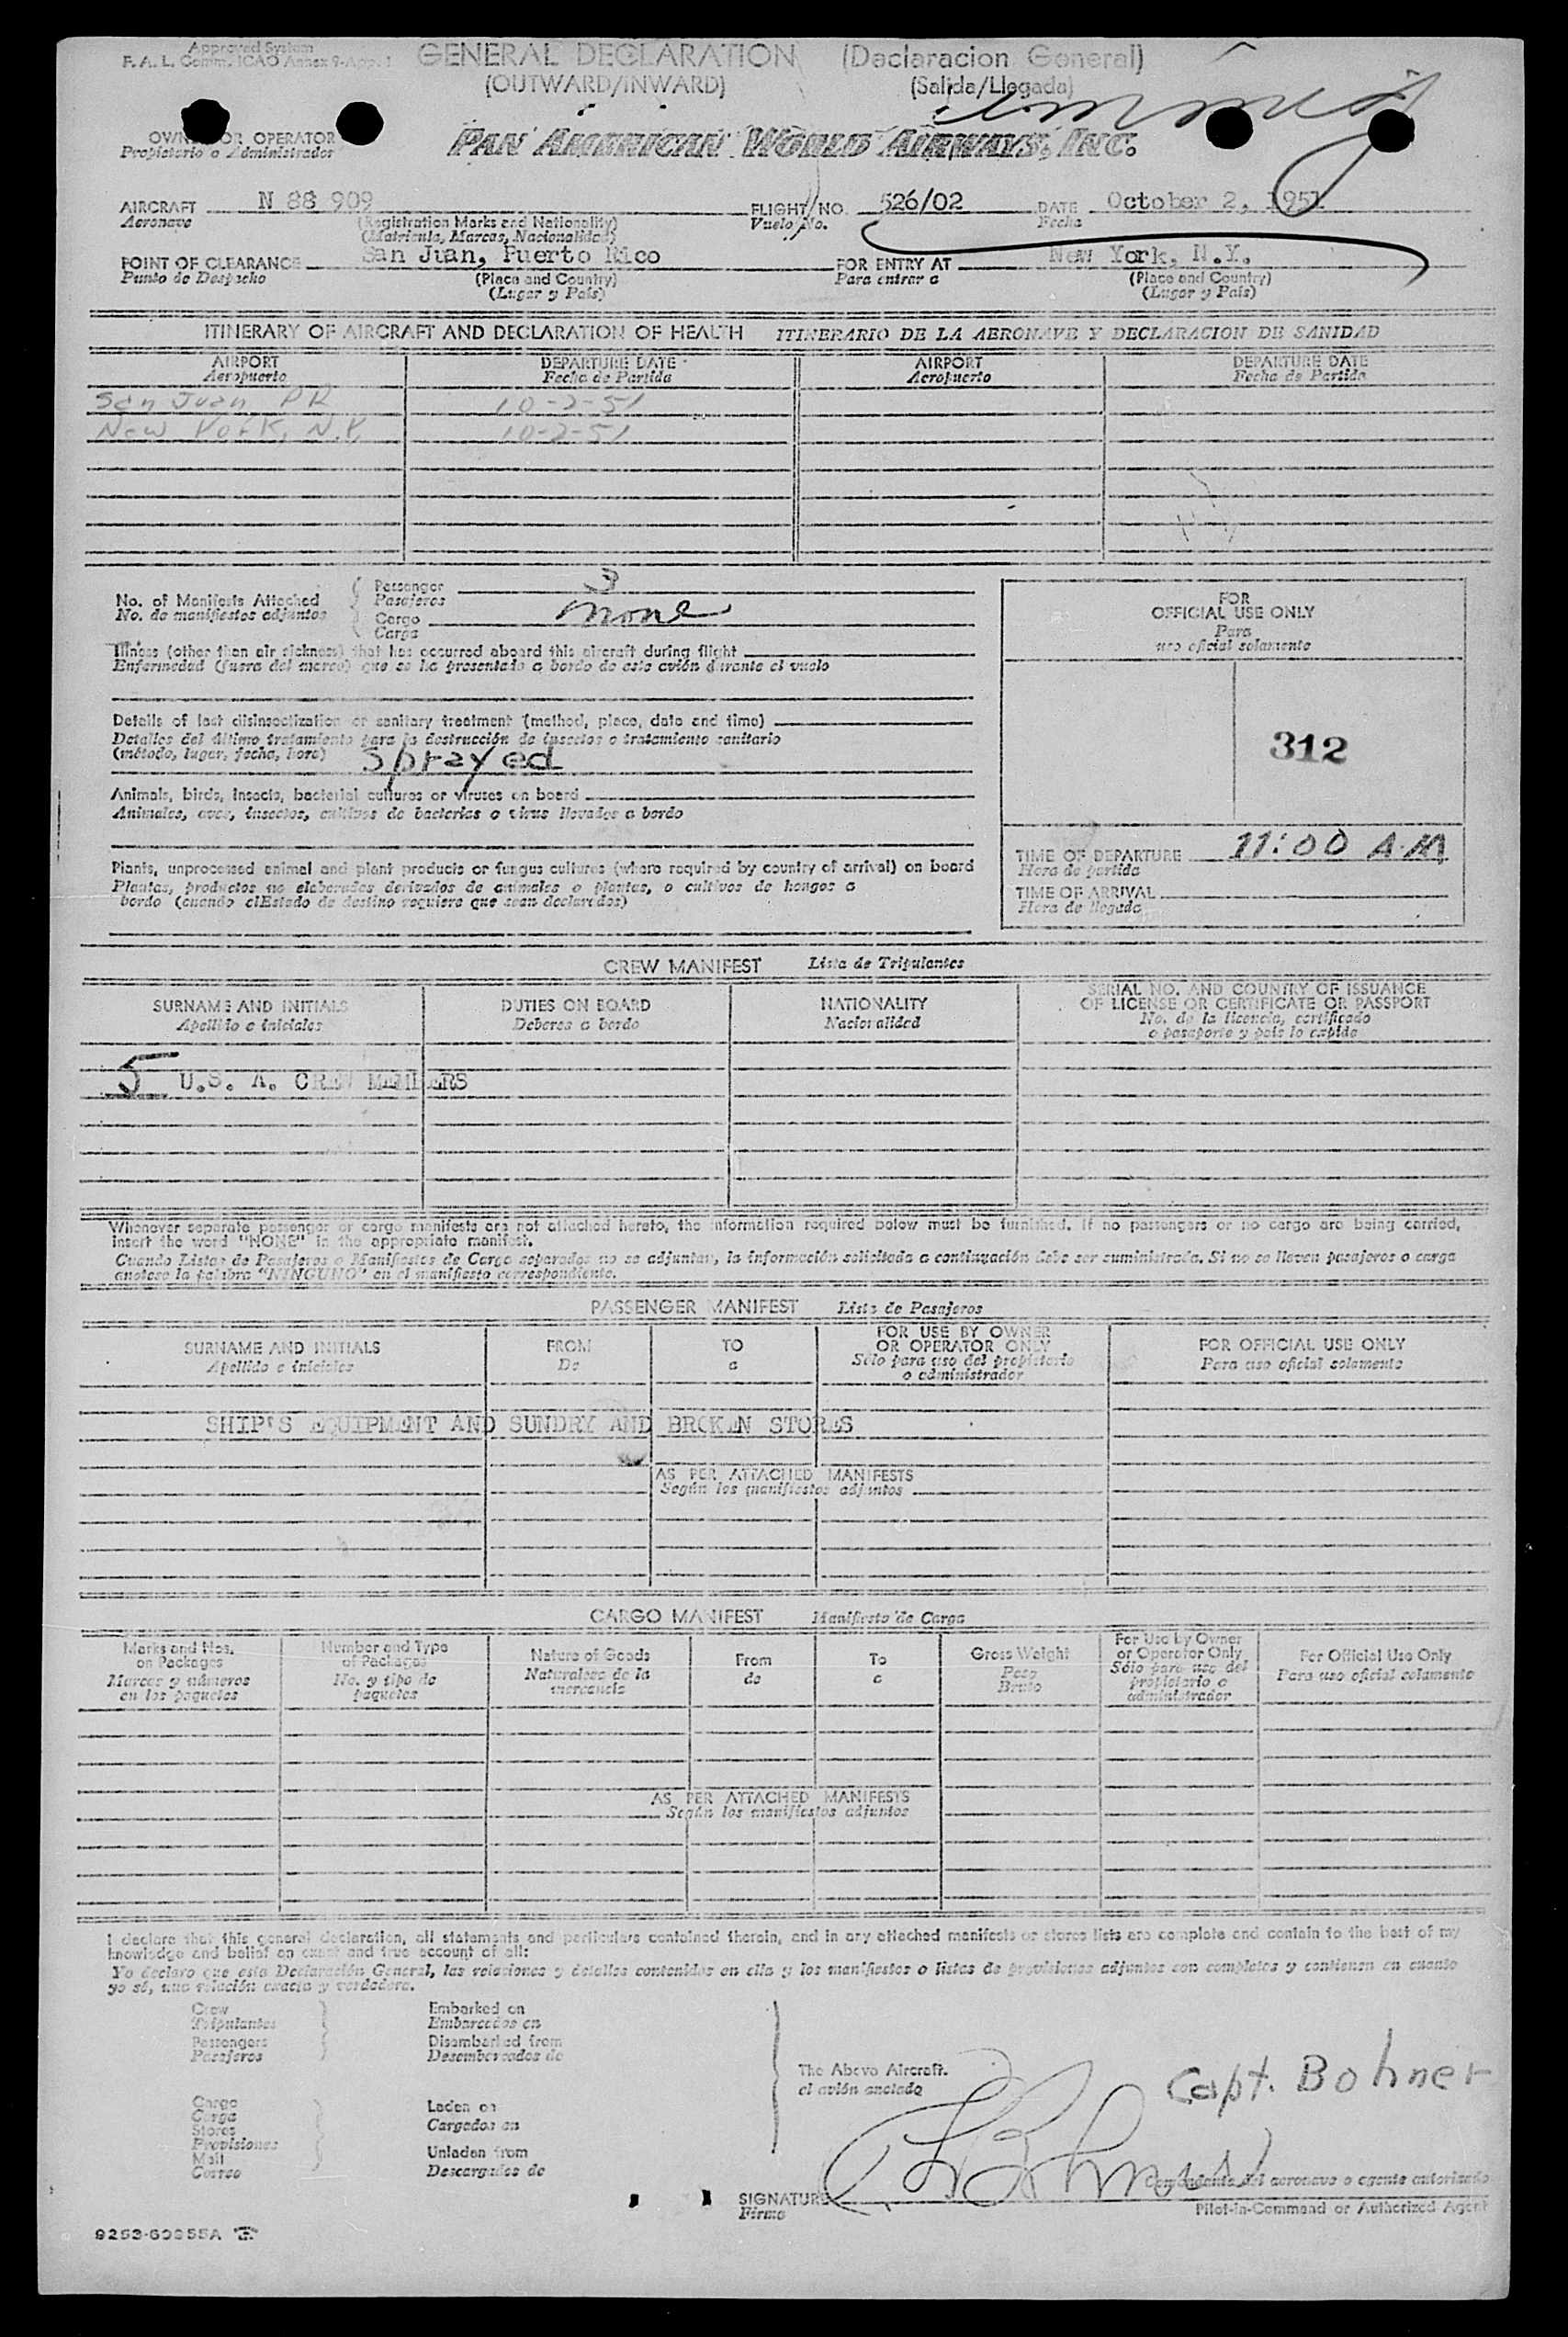 Approved System
F. A. L. Comm. ICAO Annex 9-App. 1
GENERAL DECLARATION (Declaracion General)
(OUTWARD/INWARD) (Salida/Llegada)
OWNER OR OPERATOR PAN AMERICAN WORLD AIRWAYS, INC.
Propietario o Administrador
AIRCRAFT N 88 909 FLIGHT NO. 526/02 DATE October 2, 1951
Aeronave (Registration Marks and Nationality) Vuelo No. Fecha
(Matricula, Marcas, Nacionalidad)
POINT OF CLEARANCE San Juan, Puerto Rico FOR ENTRY AT New York, N.Y.
Punto de Despacho (Place and Country) Para entrar a (Place and Country)
(Lugar y Pais) (Lugar y Pais)
ITINERARY OF AIRCRAFT AND DECLARATION OF HEALTH ITINERARIO DE LA AERONAVE Y DECLARACION DE SANIDAD
AIRPORT DEPARTURE DATE AIRPORT DEPARTURE DATE
Aeropuerto Fecha de Partida Aeropuerto Fecha de Partida
San Juan PR 10-2-51
New York, N.Y. 10-2-51
No. of Manifests Attached Passenger 3
No. de manifiestos adjuntos Pasajeros
Cargo none
Carga
Illness (other than air sickness) that has occurred aboard this aircraft during flight
Enfermedad (fuera del mareo) que se ha presentado a bordo de este avión durante el vuelo
Details of last disinsectization or sanitary treatment (method, place, date and time)
Detalles del último tratamiento para la destrucción de insectos o tratamiento sanitario
(método, lugar, fecha, hora) Sprayed
Animals, birds, insects, bacterial cultures or viruses on board
Animales, aves, insectos, cultivos de bacterias o virus llevados a bordo
Plants, unprocessed animal and plant products or fungus cultures (where required by country of arrival) on board
Plantas, productos no elaborados derivados de animales o plantas, o cultivos de hongos a
bordo (cuando el Estado de destino requiere que sean declarados)
FOR
OFFICIAL USE ONLY
Para
uso oficial solamente
312
TIME OF DEPARTURE 11:00 A.M
Hora de partida
TIME OF ARRIVAL
Hora de llegada
CREW MANIFEST Lista de Tripulantes
SURNAME AND INITIALS DUTIES ON BOARD NATIONALITY SERIAL NO. AND COUNTRY OF ISSUANCE
OF LICENSE OR CERTIFICATE OR PASSPORT
Apellido e iniciales Deberes a bordo Nacionalidad No. de la licencia, certificado
o pasaporte y pais lo expide
5 U.S. A. CREW MEMBERS
Whenever separate passenger or cargo manifests are not attached hereto, the information required below must be furnished. If no passengers or no cargo are being carried,
insert the word "NONE" in the appropriate manifest.
Cuando Listas de Pasajeros o Manifiestos de Carga separados no se adjuntan, la información solicitada a continuación debe ser suministrada. Si no se llevan pasajeros o carga
anotese la palabra "NINGUNO" en el manifiesto correspondiente.
PASSENGER MANIFEST Lista de Pasajeros
SURNAME AND INITIALS FROM TO FOR USE BY OWNER
OR OPERATOR ONLY FOR OFFICIAL USE ONLY
Apellido e iniciales De a Sólo para uso del propietario
o administrador Para uso oficial solamente
SHIP'S EQUIPMENT AND SUNDRY AND BROKEN STORES
AS PER ATTACHED MANIFESTS
Según los manifiestos adjuntos
CARGO MANIFEST Manifiesto de Carga
Marks and Nos.
on Packages
Marcas y números
en los paquetes
Number and Type
of Packages
No. y tipo de
paquetes
Nature of Goods
Naturaleza de la
mercancía
From
de
To
a
Gross Weight
Peso
Bruto
For Use by Owner
or Operator Only
Sólo para uso del
propietario o
administrador
For Official Use Only
Para uso oficial solamente
AS PER ATTACHED MANIFESTS
Según los manifiestos adjuntos
I declare that this general declaration, all statements and particulars contained therein, and in any attached manifests or stores lists are complete and contain to the best of my
knowledge and belief an exact and true account of all:
Yo declaro que esta Declaración General, las relaciones y detalles contenidos en ella y los manifiestos o listas de provisiones adjuntos son completos y contienen en cuanto
yo sé, una relación exacta y verdadera.
Crew
Tripulantes
Passengers
Pasajeros
Embarked on
Embarcados en
Disembarked from
Desembarcados de
Cargo
Carga
Stores
Provisiones
Mail
Correo
Laden on
Cargados en
Unladen from
Descargados de
The Above Aircraft.
el avión anotado
Capt. Bohner
Comandante del aeronave o agente autorizado
SIGNATURE
Firma
Pilot-in-Command or Authorized Agent